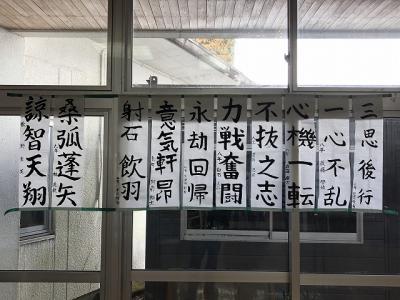 三思後行
一心不乱
心機一転
不抜之志
力戦奮闘
永劫回帰
意気軒昂
射石飲羽
桑弧蓬矢
諒智天翔